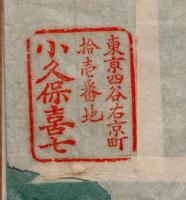 東京四谷右京町
拾壱番地
小久保喜七